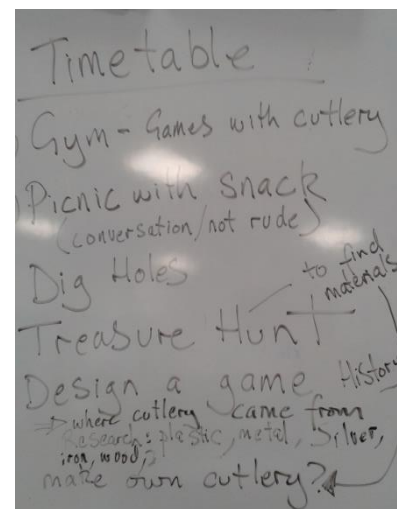 Timetable
Gym - Games with cutlery
Picnic with snack
(conversation/not rude)
Dig Holes
to find
materials
Treasure Hunt
Design a game
History
⇒ where cutlery came from
Research: plastic, metal, silver,
iron, wood,
make own cutlery?